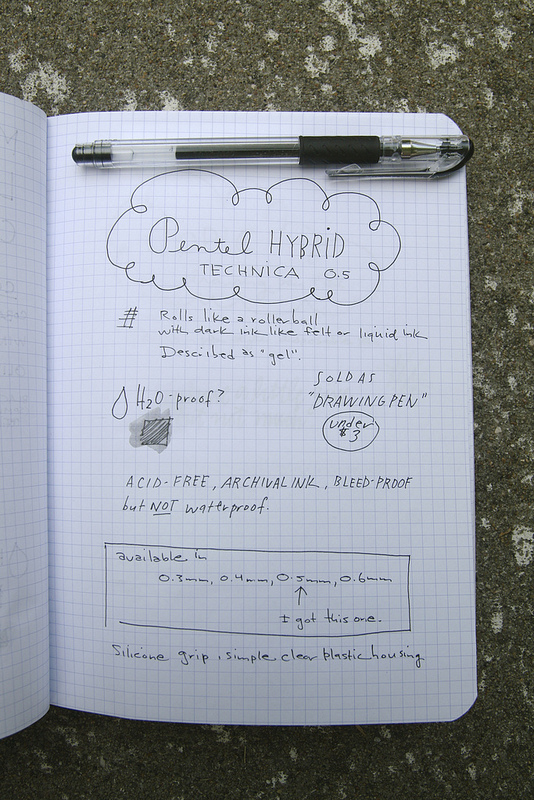 Pentel HYBRID
TECHNICA 0.5
# Rolls like a rollerball
with dark ink like felt or liquid ink
Described as "gel".
H2O-proof?
SOLD AS
"DRAWING PEN"
under
$3
ACID-FREE, ARCHIVAL INK, BLEED-PROOF
but NOT waterproof.
available in
0.3mm, 0.4mm, 0.5mm, 0.6mm
I got this one.
Silicone grip, simple clear plastic housing